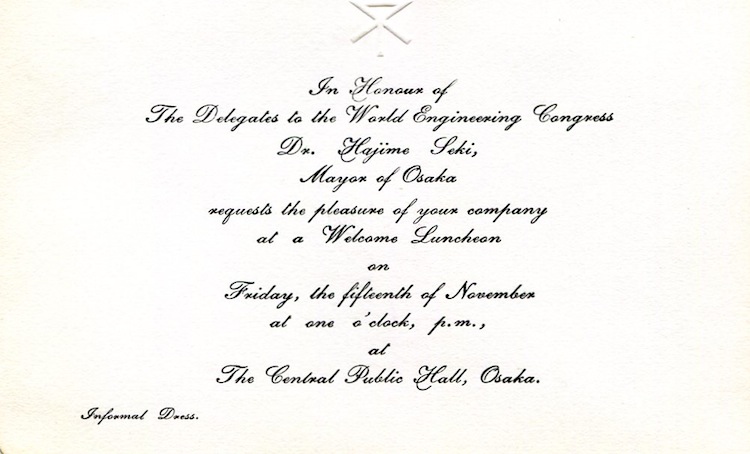 In Honour of
The Delegates to the World Engineering Congress
Dr. Hajime Seki,
Mayor of Osaka
requests the pleasure of your company
at a Welcome Luncheon
on
Friday, the fifteenth of November
at one o'clock, p.m.,
at
The Central Public Hall, Osaka.
Informal Dress.